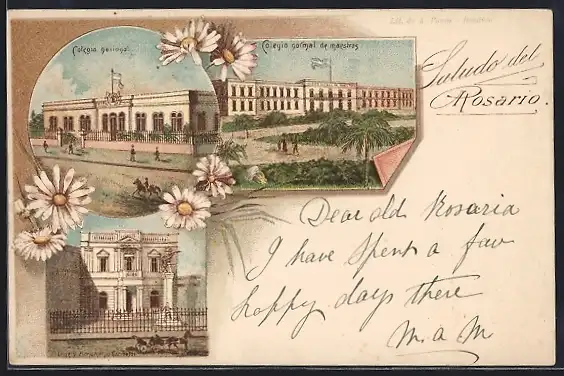 Colegio nacional
Colegio normal de maestras
Saludo del
Rosario.
Dear old Rosaria
I have spent a few
happy days there
M a M